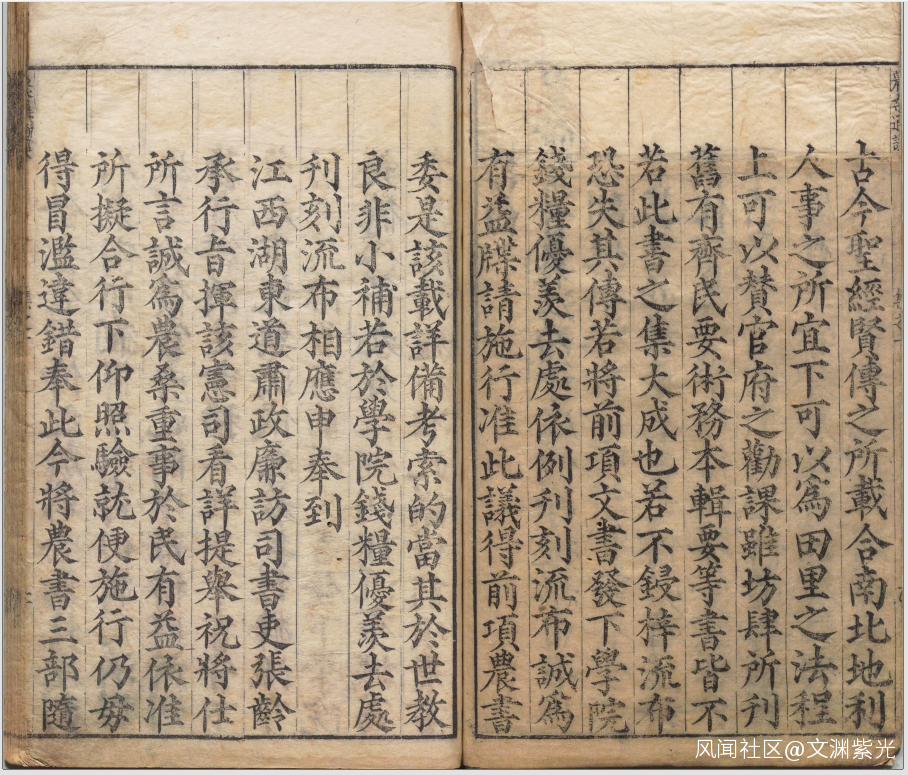 古今聖經賢傳之所載合南北地利
人事之所宜下可以為田里之法程
上可以贊官府之勸課雖坊肆所刊
舊有齊民要術務本輯要等書皆不
若此書之集大成也若不鋟梓流布
恐失其傳若將前項文書發下學院
錢糧優羨去處依例刋刻流布誠為
有益牒請施行准此議得前項農書
委是該載詳備考索的當其於世教
良非小補若於學院錢糧優羨去處
刋刻流布相應申奉到
江西湖東道肅政廉訪司書吏張齡
承行旨揮該憲司看詳提舉祝將仕
所言誠為農桑重事於民有益依准
所擬合行下仰照驗就便施行仍毋
得冒濫違錯奉此今將農書三部隨
风闻社区@文渊紫光